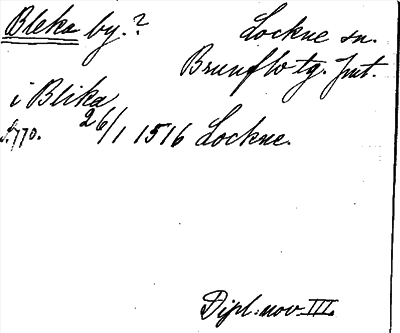 Bleka by.? Lockne sn.
Brunflo tg. Jmt.
i Blika
s. 770. 26/1 1516 Lockne.
Dipl. nov. III.